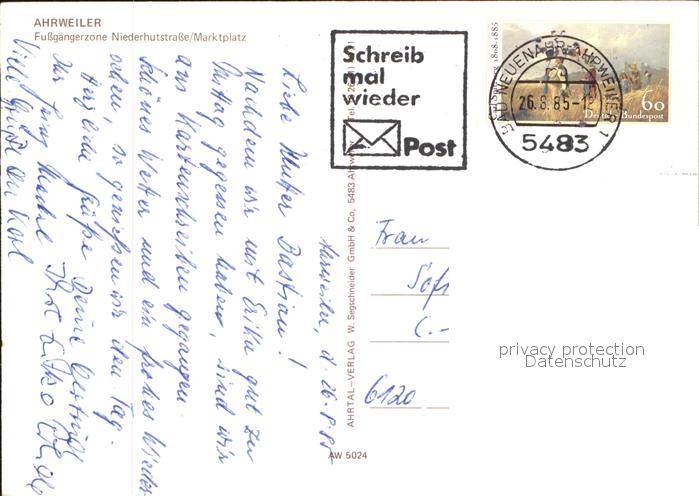 AHRWEILER
Fußgängerzone Niederhutstraße/Marktplatz
Schreib
mal
wieder
Post
BAD NEUENAHR-AHRWEILER 1
26.8.85-1
5483
1808-1885
60
Deutsche Bundespost
Ahrweiler, d. 26.8.85
Liebe Mutter Bastian!
Nachdem wir mit Erika gut zu
Mittag gegessen haben, sind wir
ans Kartenschreiben gegangen.
Schönes Wetter und ein frohes Wieder-
sehen, so genießen wir den Tag.
Herzliche Grüße Deine
Viele Grüße
AHRTAL-VERLAG W. Segschneider GmbH & Co, 5483 Ahrweiler
AW 5024
Frau
6120
privacy protection
Datenschutz